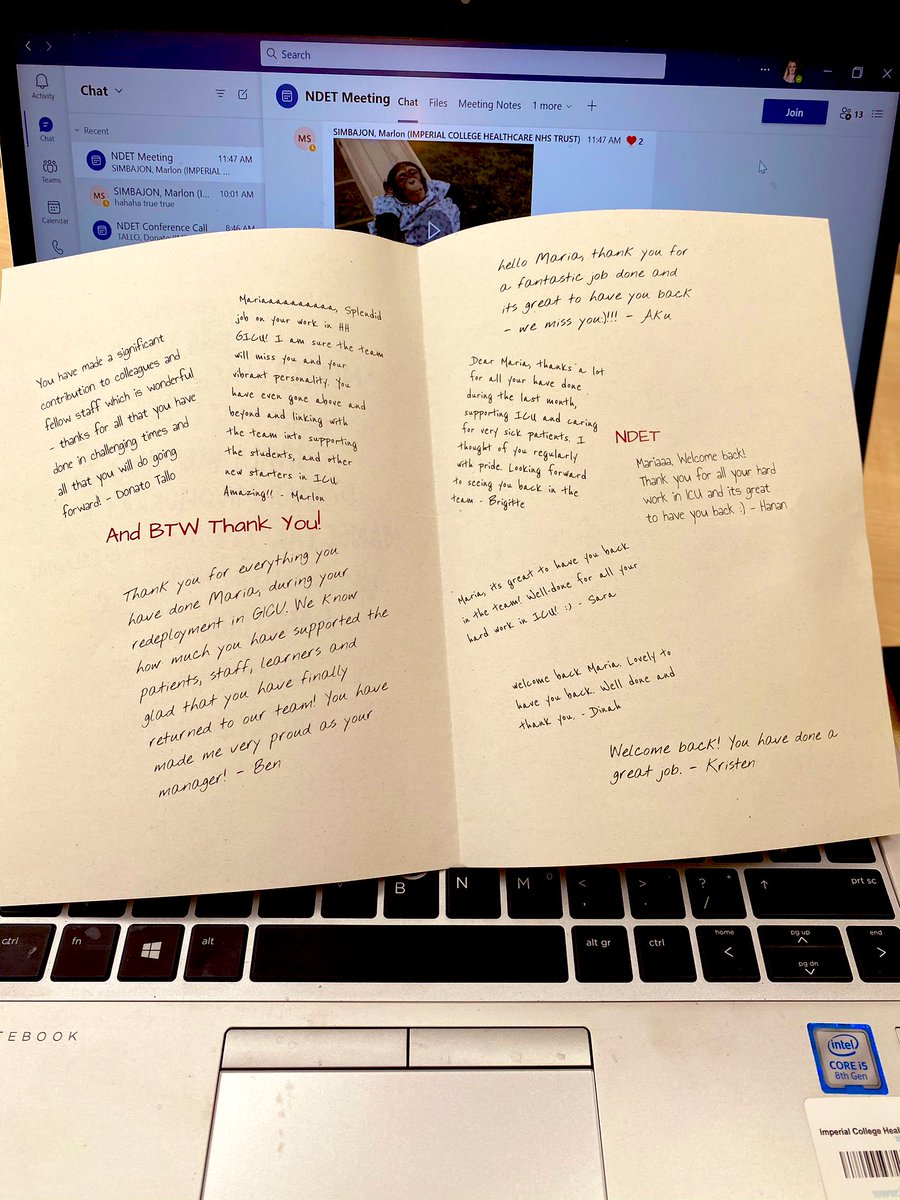 Search
Activity
Chat
Teams
Calendar
Chat
Recent
NDET Meeting 11:47 AM
SIMBAJON, Marlon (IMPERIAL ...
MS
SIMBAJON, Marlon (I... 10:01 AM
hahaha true true
NDET Conference Call 8:46 AM
TALLO, Donato
NDET Meeting Chat Files Meeting Notes 1 more
Join
13
MS
SIMBAJON, Marlon (IMPERIAL COLLEGE HEALTHCARE NHS TRUST) 11:47 AM 2
You have made a significant
contribution to colleagues and
fellow staff which is wonderful
- thanks for all that you have
done in challenging times and
all that you will do going
forward! - Donato Tallo
Mariaaaaaaaaaaa, Splendid
job on your work in HH
GICU! I am sure the team
will miss you and your
vibrant personality. You
have even gone above and
beyond and linking with
the team into supporting
the students, and other
new starters in ICU.
Amazing!! - Marlon
And BTW Thank You!
Thank you for everything you
have done Maria, during your
redeployment in GICU. We Know
how much you have supported the
patients, staff, learners and
glad that you have finally
returned to our team! You have
made me very proud as your
manager! - Ben
hello Maria, thank you for
a fantastic job done and
its great to have you back
- we miss you)!!! - Aku
Dear Maria, thanks a lot
for all your have done
during the last month,
supporting ICU and caring
for very sick patients. I
thought of you regularly
with pride. Looking forward
to seeing you back in the
team - Brigitte
NDET
Mariaaa, Welcome back!
Thank you for all your hard
work in ICU and its great
to have you back :) - Hanan
Maria, its great to have you back
in the team! Well-done for all your
hard work in ICU! :) - Sara
welcome back Maria. Lovely to
have you back. Well done and
thank you. - Dinah
Welcome back! You have done a
great job. - Kristen
B N M < , > . ? / ↑ prt sc
ctrl fn alt alt gr ctrl home < pg up pg dn end >
TEBOOK
intel
CORE i5
8th Gen
Imperial College Heal